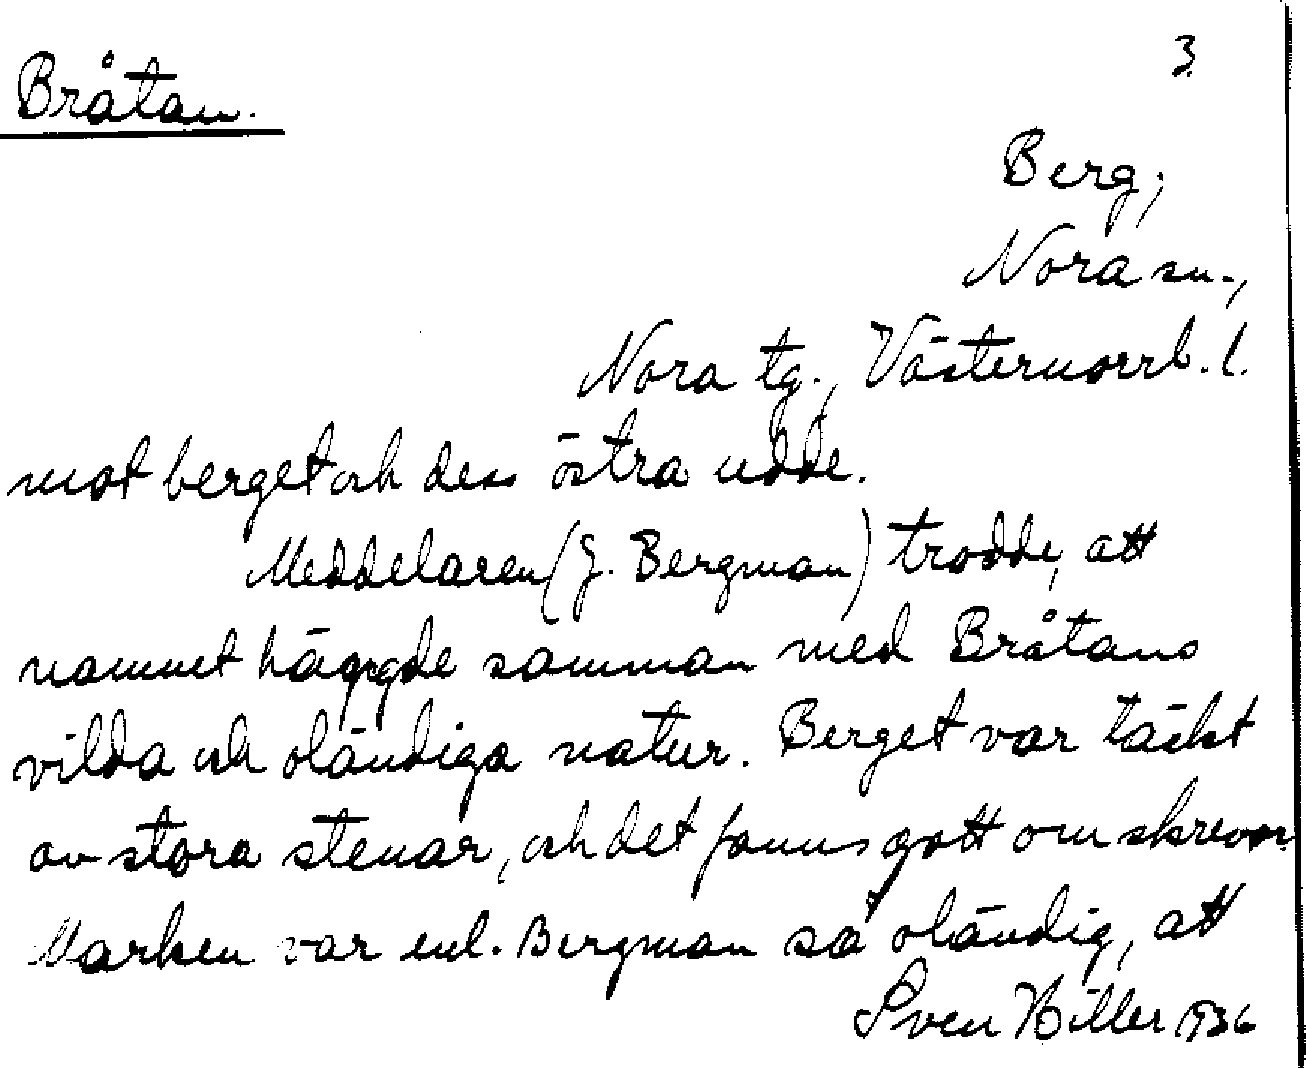 3
Bråtan.
Berg;
Nora sn.,
Nora tg., Västernorrl. l.
mot berget och dess östra udde.
Meddelaren (J. Bergman) trodde, att
namnet hängde samman med Bråtans
vilda och oländiga natur. Berget var täckt
av stora stenar, och det fanns gott om skrevor.
Marken var enl. Bergman så oländig, att
Sven Hiller 1936